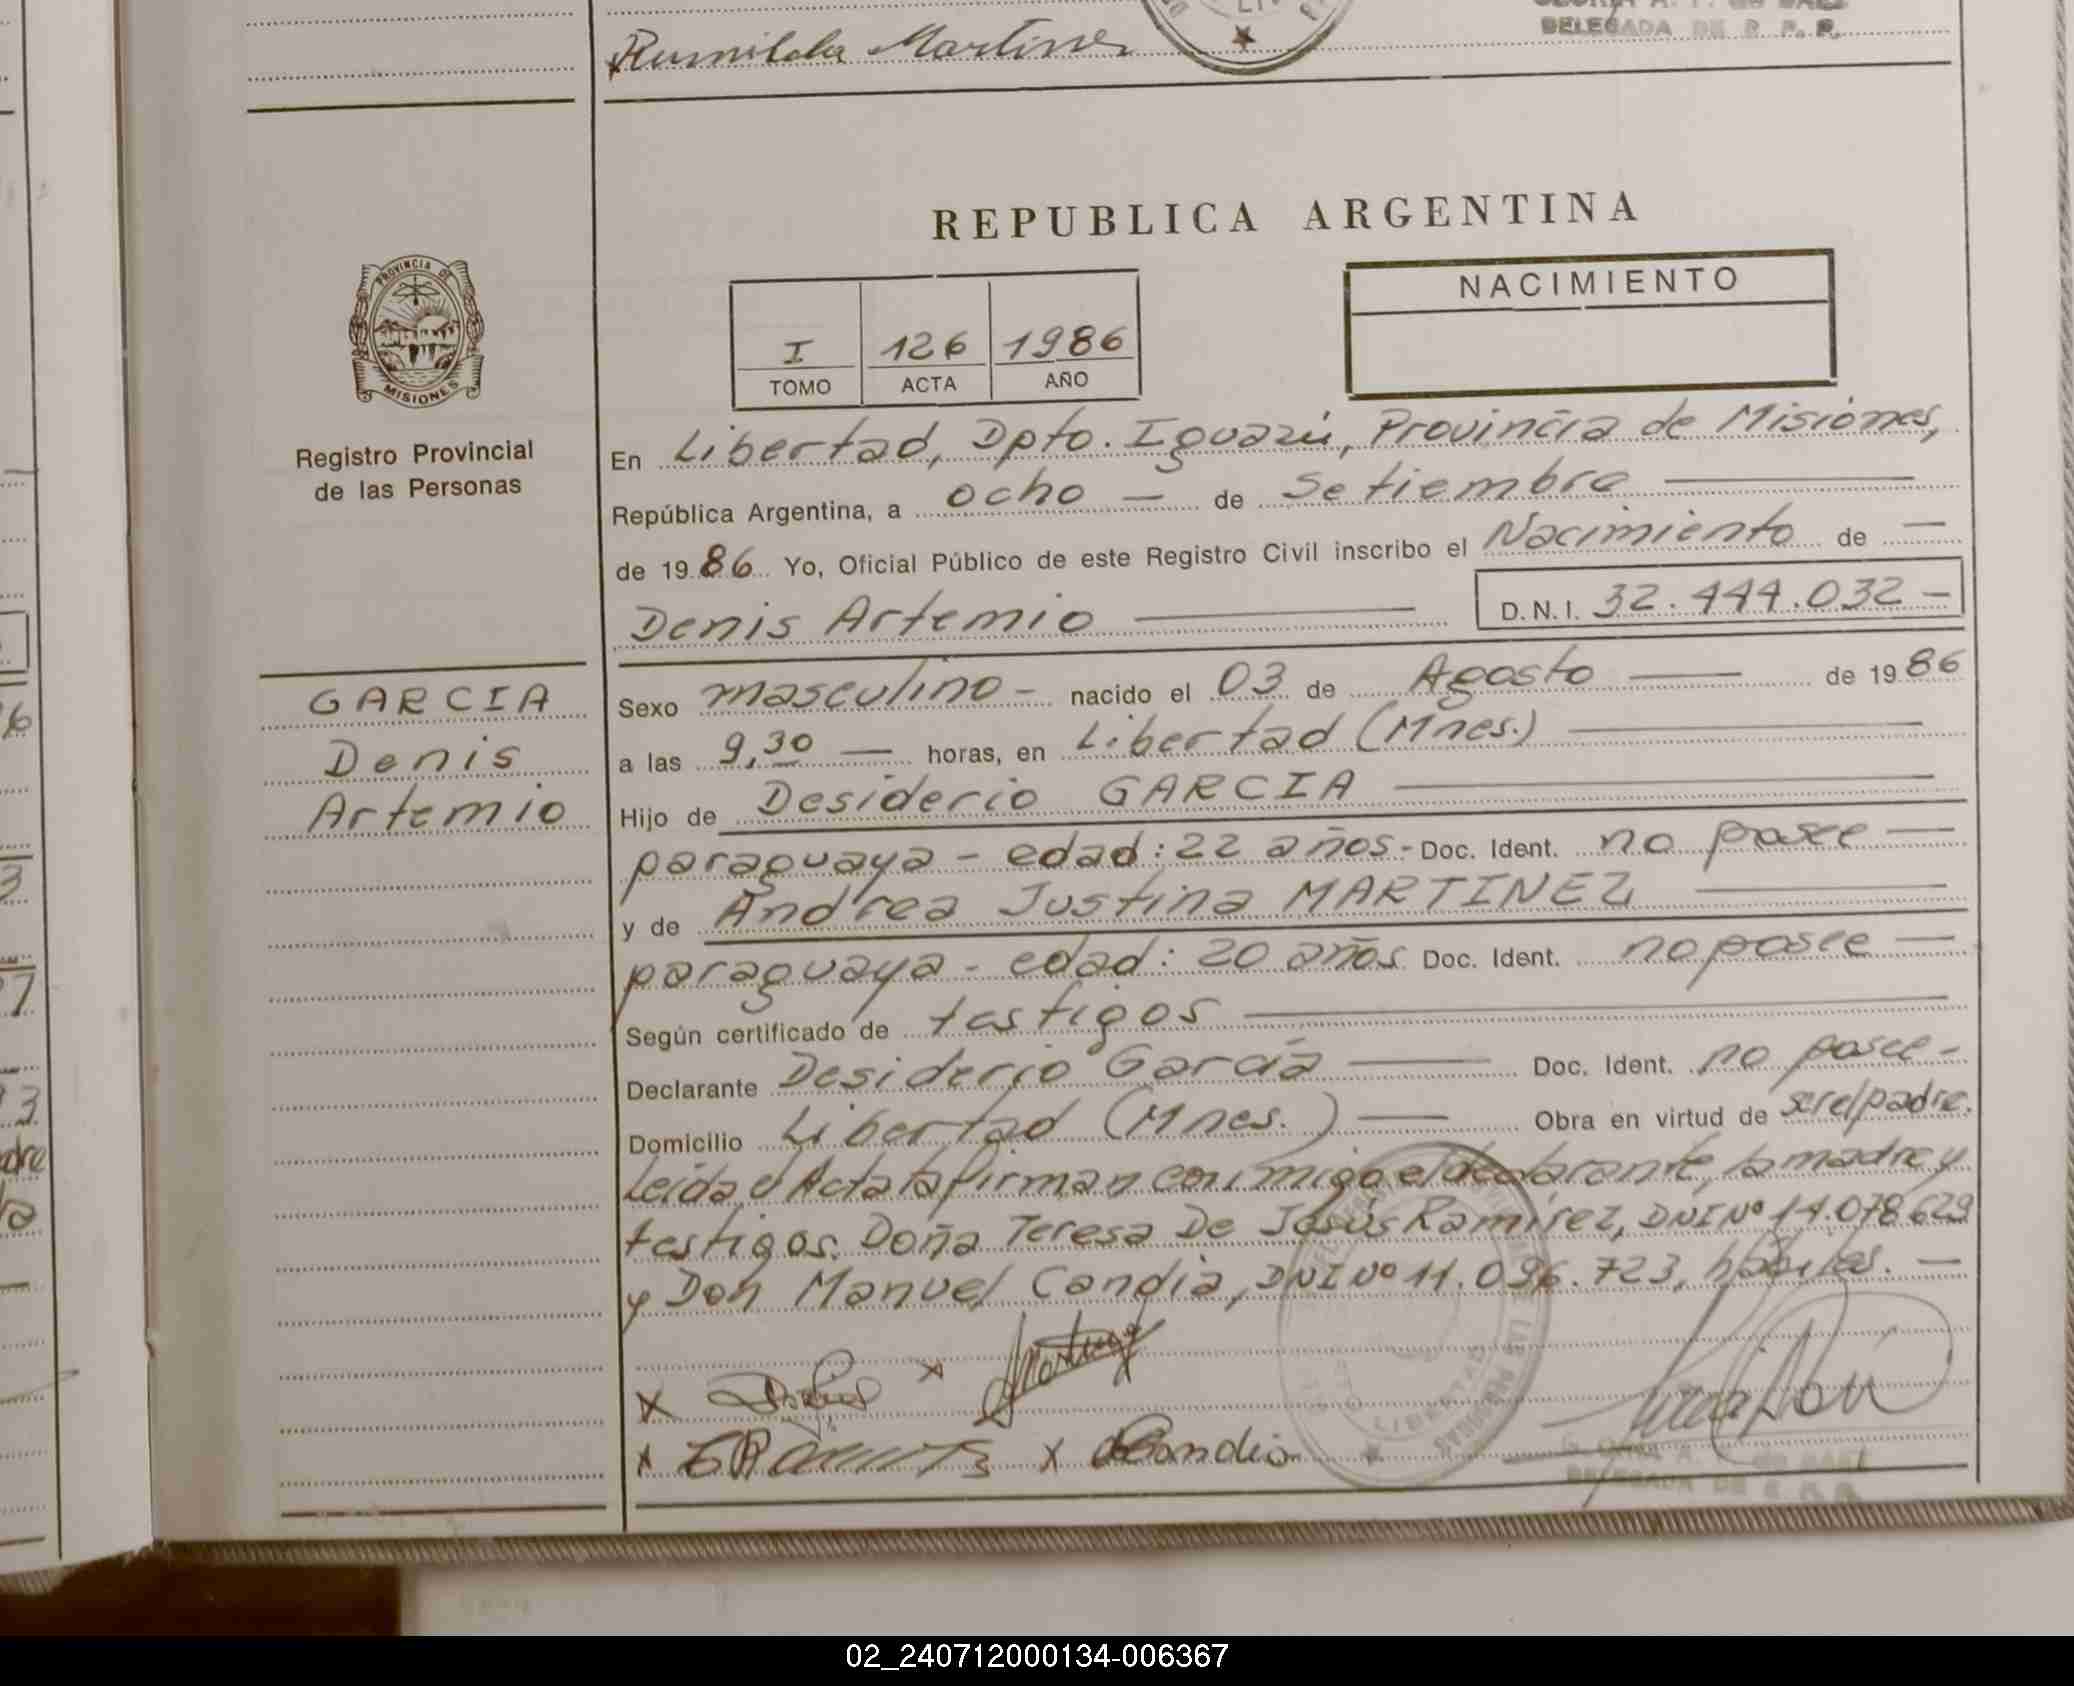 Rumilda Martinez
DELEGADA DE R. P. P.
REPUBLICA ARGENTINA
PROVINCIA DE
MISIONES
Registro Provincial
de las Personas
I 126 1986
TOMO ACTA AÑO
NACIMIENTO
En Libertad, Dpto. Iguazú, Provincia de Misiones,
República Argentina, a ocho — de Setiembre —
de 1986 Yo, Oficial Público de este Registro Civil inscribo el Nacimiento de —
Denis Artemio — D.N.I. 32.444.032 —
GARCIA
Denis
Artemio
Sexo masculino - nacido el 03 de Agosto — de 1986
a las 9,30 — horas, en Libertad (Mnes.) —
Hijo de Desiderio GARCIA —
paraguaya - edad: 22 años.- Doc. Ident. no posee —
y de Andrea Justina MARTINEZ —
paraguaya - edad: 20 años Doc. Ident. no posee —
Según certificado de testigos —
Declarante Desiderio García — Doc. Ident. no posee -
Domicilio Libertad (Mnes.) — Obra en virtud de ser el padre.
Leída el Acta la firman conmigo el declarante, la madre y
testigos. Doña Teresa De Jesús Ramírez, DNI Nº 14.078.629
y Don Manuel Candia, DNI Nº 11.096.723, hábiles. —
X X Martinez
X X Candia
LIBERTAD
02_240712000134-006367